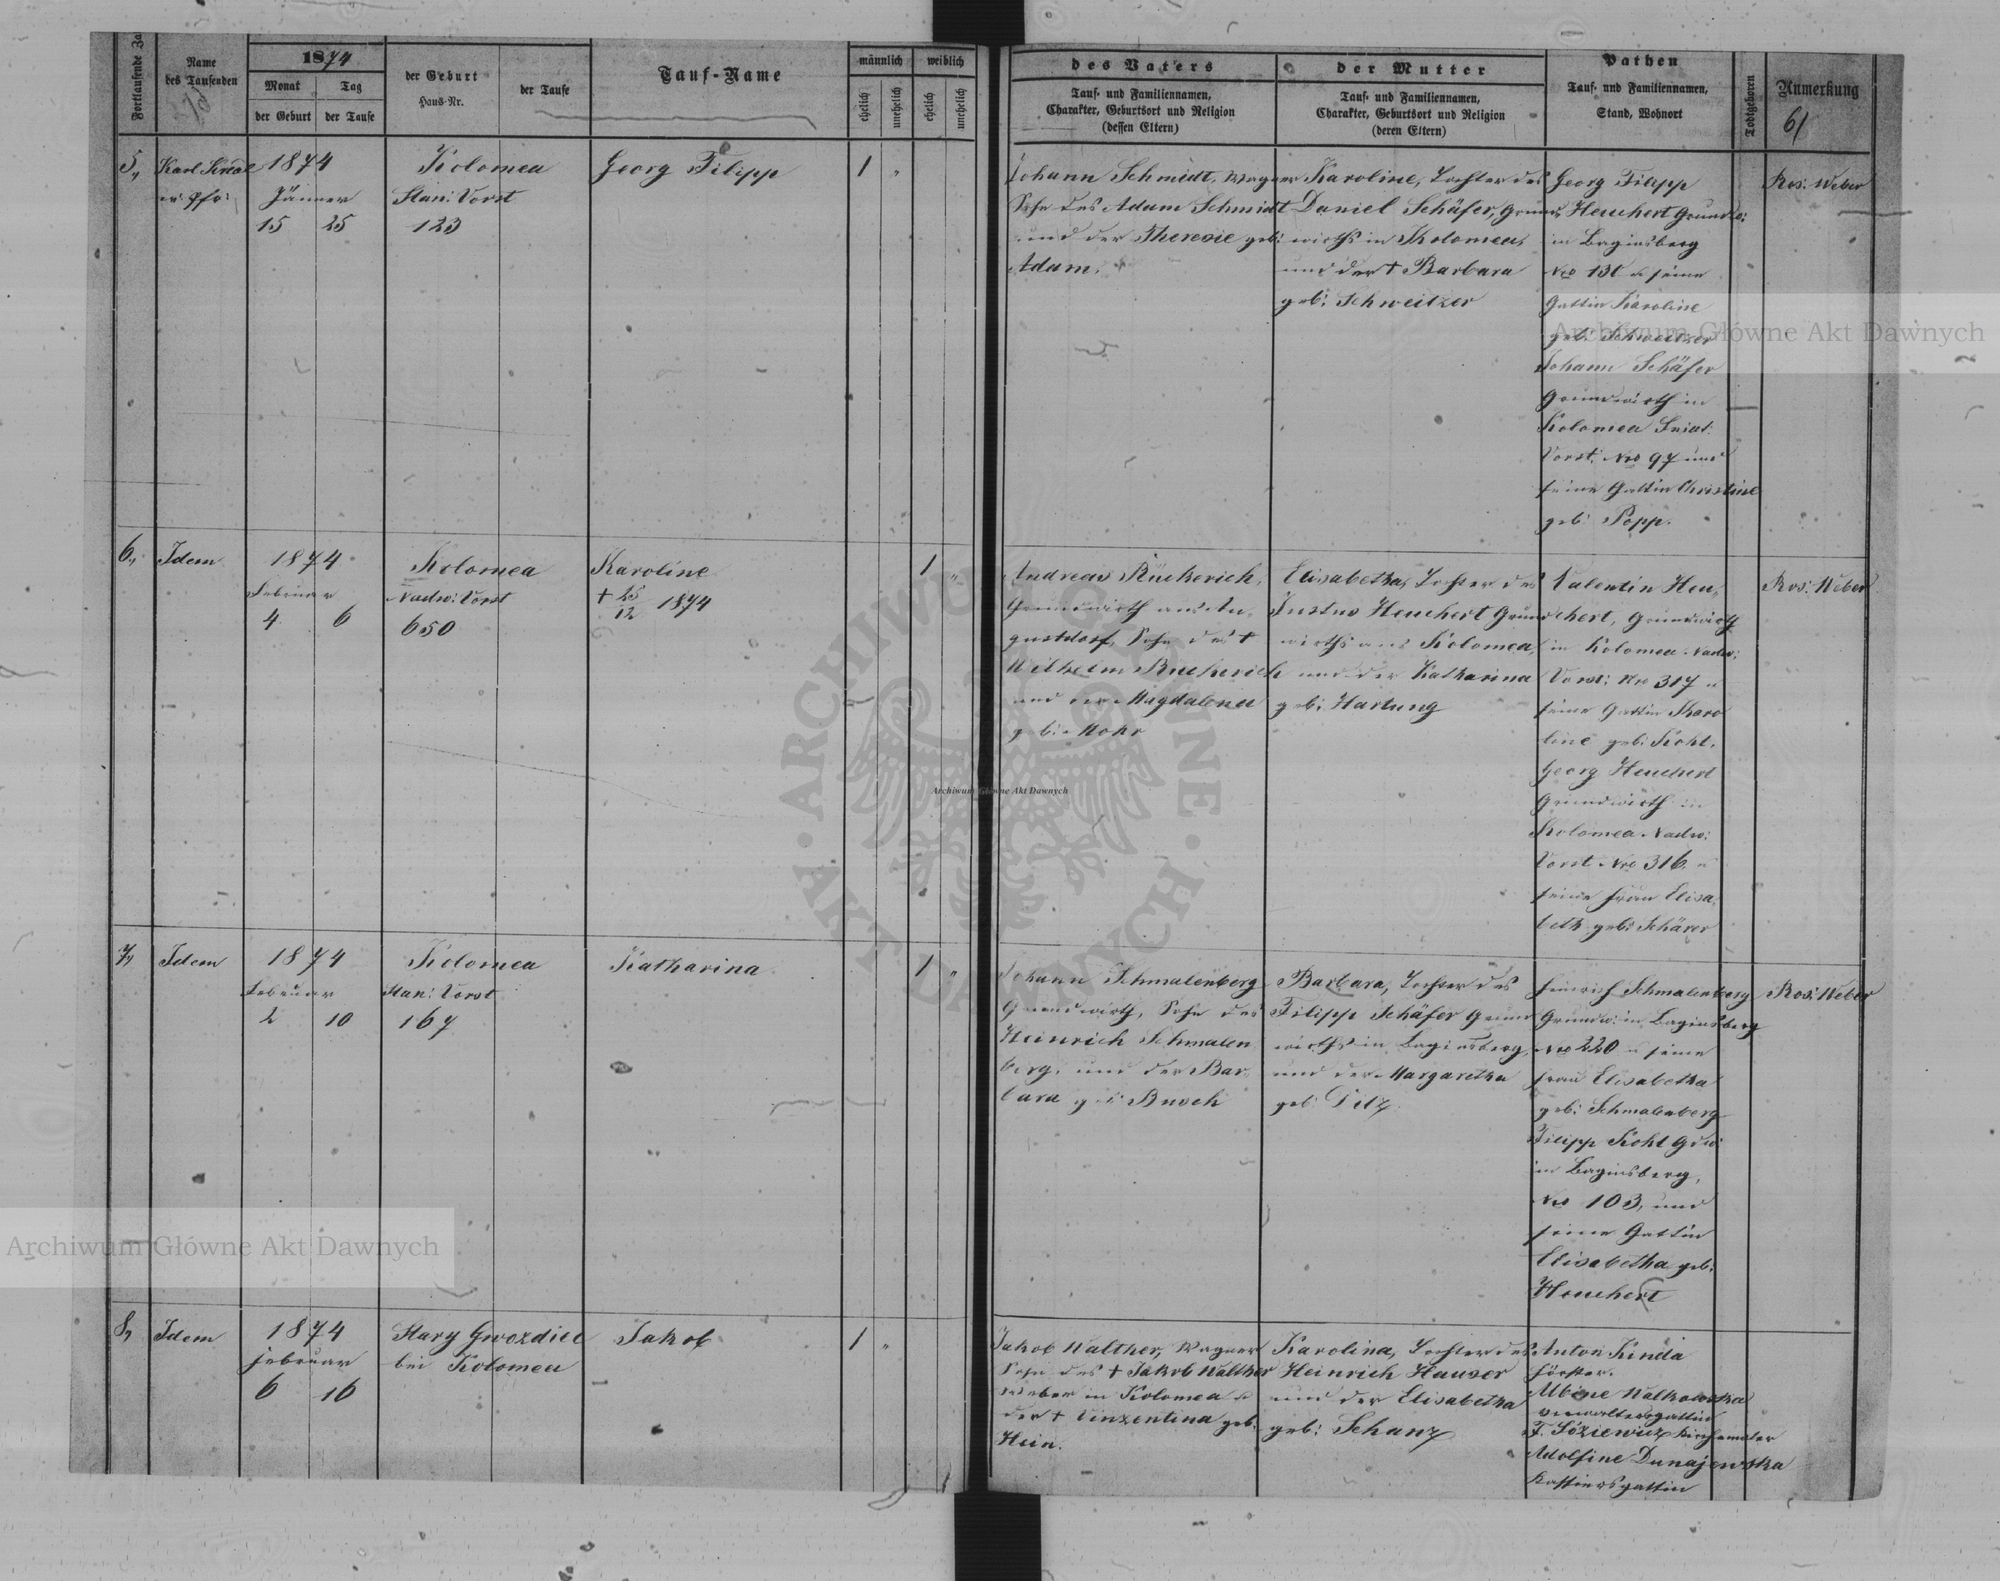 Fortlaufende Za
Name
des Taufenden
1874
Monat
Tag
der Geburt
der Taufe
der Geburt
Haus-Nr.
der Taufe
Tauf-Name
männlich
weiblich
ehelich
unehelich
ehelich
unehelich
des Vaters
Tauf- und Familiennamen,
Charakter, Geburtsort und Religion
(dessen Eltern)
der Mutter
Tauf- und Familiennamen,
Charakter, Geburtsort und Religion
(deren Eltern)
Pathen
Tauf- und Familiennamen,
Stand, Wohnort
Todtgeboren
Anmerkung
61
5,,
Karl
1874
Jänner
15 25
Kolomea
Stan: Vorst
123
Georg Filipp
1 „
Johann Schmidt, Wagner
Sohn des Adam Schmidt
und der Theresie geb:
Adam.
Karoline, Tochter des
Daniel Schäfer, Grund
wirths in Kolomea,
und der † Barbara
geb: Schweitzer
Georg Filipp
Heuchert Grundw:
in Baginsberg
Nro 131 u seine
Gattin Karoline
geb: Schweitzer
Johann Schäfer
Grundwirth in
Kolomea Sniat:
Vorst: Nro 97 und
seine Gattin Christine
geb: Popp.
Ros: Weber
6,,
Idem
1874
Februar
4 6
Kolomea
Nadw: Vorst
650
Karoline
† 25/12 1874
1 „
Andreas Rückerich,
Grundwirth aus Au,
gustdorf, Sohn des †
Wilhelm Ruckerich
und der Magdalena
geb: Mohr
Elisabetha, Tochter des
Justus Heuchert Grund
wirths aus Kolomea,
und der Katharina
geb: Hartung
Valentin Heu,
chert, Grundwirth
in Kolomea Nadw:
Vorst: Nro 317 u
seine Gattin Karo
line geb: Kohl,
Georg Heuchert
Grundwirth in
Kolomea Nadw:
Vorst Nro 316 u
seine Frau Elisa,
beth geb: Schärer
Ros: Weber
7,,
Idem
1874
Februar
2 10
Kolomea
Stan: Vorst
167
Katharina
1 „
Johann Schmalenberg
Grundwirth, Sohn des
Heinrich Schmalen
berg, und der Bar,
bara geb: Busch
Barbara, Tochter des
Filipp Schäfer Grund
wirths in Baginsberg,
und der Margaretha
geb: Dilz
Heinrich Schmalenberg
Grundw: in Baginsberg
Nro 220 u seine
Frau Elisabetha
geb: Schmalenberg
Filipp Kohl Gdw:
in Baginsberg,
Nro 103, und
seine Gattin
Elisabetha geb:
Heuchert
Ros: Weber
8,,
Idem
1874
Februar
6 16
Stary Gwozdiec
bei Kolomea
Jakob
1 „
Jakob Walther, Wagner
Sohn des † Jakob Walther
Weber in Kolomea u
der † Vinzentina geb:
Hein.
Karolina, Tochter des
Heinrich Hauser
und der Elisabetha
geb: Schanz
Anton Kinda
Förster.
Albine Walkowska
Verwaltersgattin
F. Łóziewicz Kirchenmaler
Adolfine Dunajewska
Kassiersgattin
Archiwum Główne Akt Dawnych
Archiwum Główne Akt Dawnych
Archiwum Główne Akt Dawnych
ARCHIWUM GŁÓWNE · AKT DAWNYCH ·